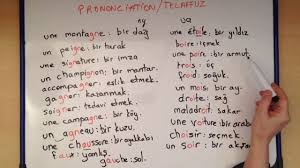 PRONONCIATION / TELAFFUZ
gn
une montagne: bir dağ
un peigne: bir tarak
une signature: bir imza
un champignon: bir mantar
accompagner: eşlik etmek
gagner: kazanmak
soigner: tedavi etmek
un cognac: bir konyak
un agneau: bir kuzu.
une chaussure: bir ayakkabı
faux: yanlış
gauche: sol
ua
une étoile: bir yıldız
boire: içmek
une poire: bir armut
trois: üç
froid: soğuk.
un mois: bir ay
droite: sağ
maladroit: sakar.
une voiture: bir araba
choisir: seçmek
soir: akşam